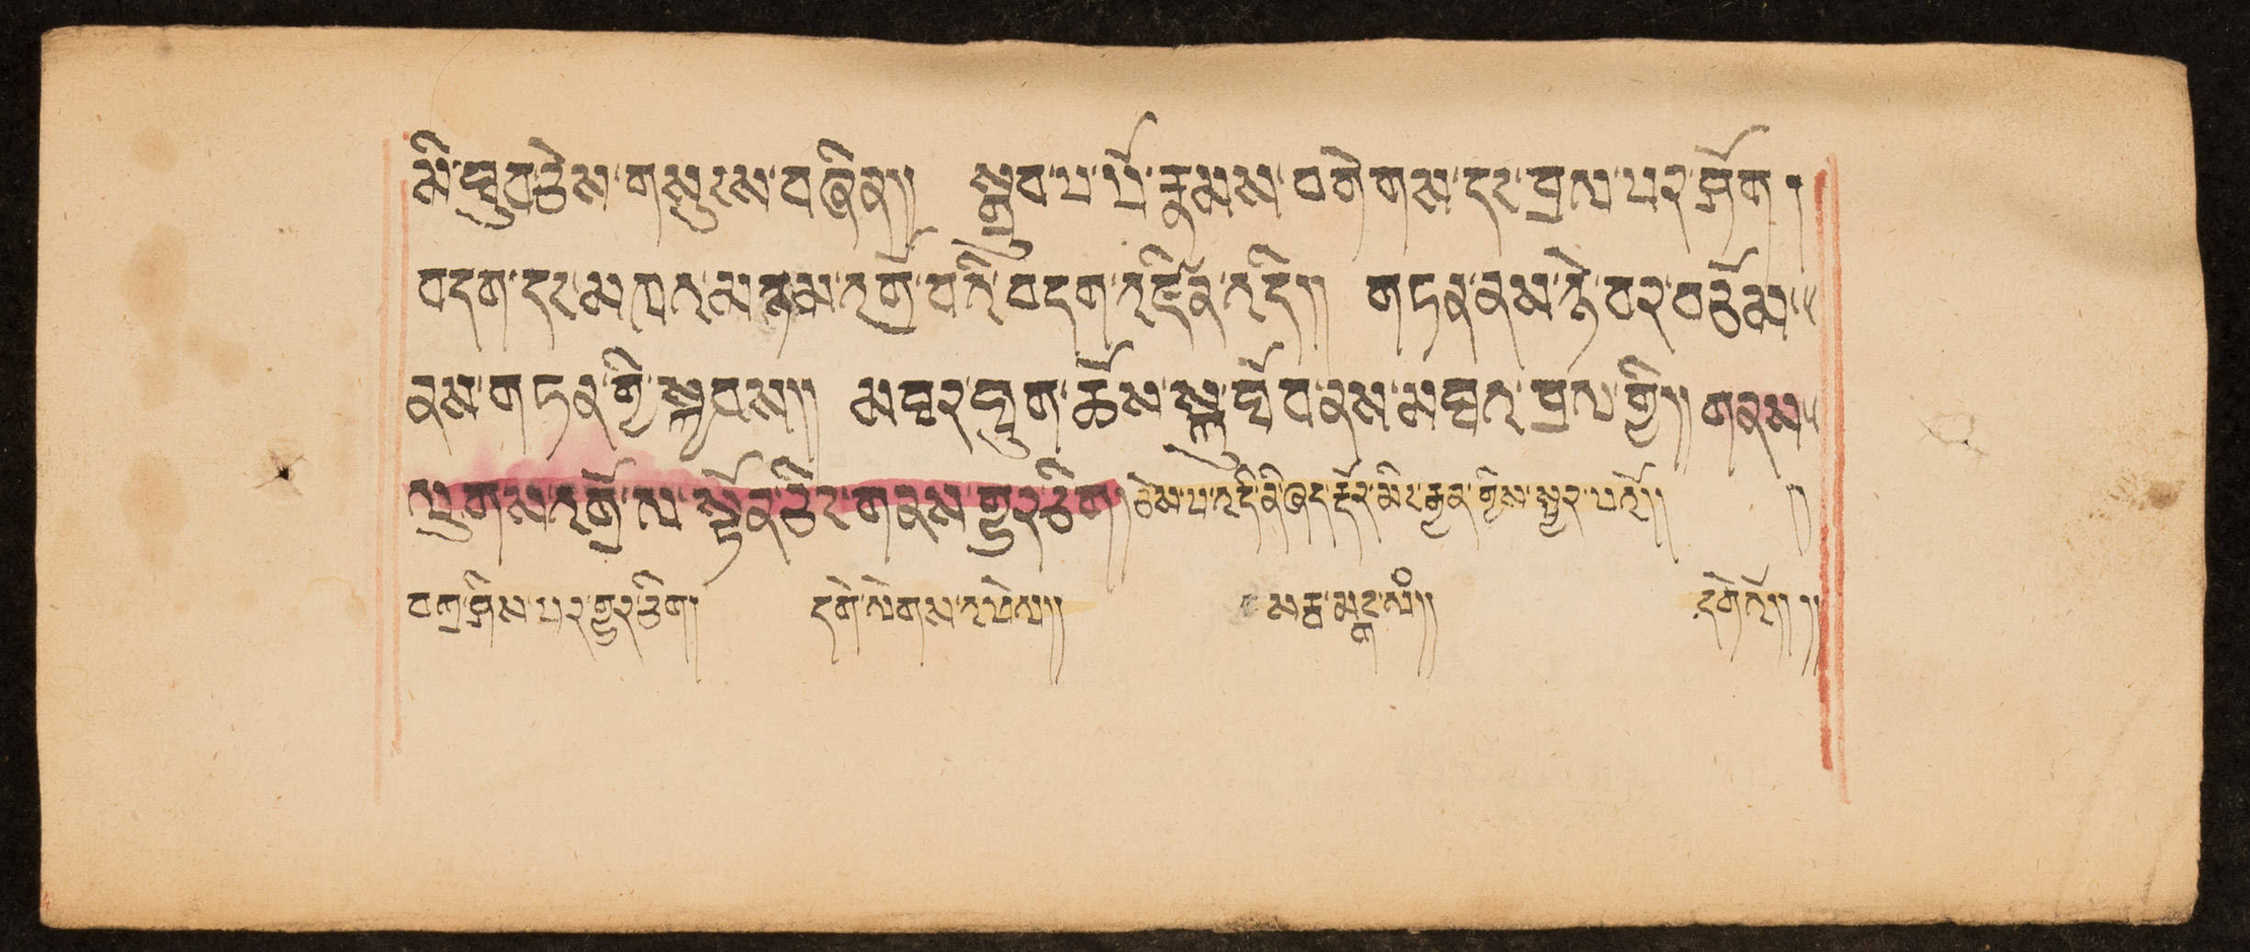 མི་ཁྲུབ་ཅེས་གསུངས་བཞིན།། སྒྲུབ་པ་པོ་རྣམས་བགེགས་དང་བྲལ་བར་ཤོག །
བདག་དང་མཁའ་མཉམ་འགྲོ་བའི་བདག་འཛིན་འདི།། གཏན་ནས་རྩེ་བར་བཅོམ
ནས་གཏན་གྱི་སྐྱབས།། མཐར་ཐུག་ཆོས་སྐུ་ཐོབ་ནས་མཐའ་བྲལ་གྱི།། གནས
ལུགས་འགྲོ་ལ་སྟོན་ཅིང་གནས་གྱུར་ཅིག །ཅེས་པ་འདི་ནི་ཞད་རྡོར་མིང་རྒྱན་གྱིས་སྦྱར་བའོ།། །།
བཀྲ་ཤིས་པར་གྱུར་ཅིག། དགེ་ལེགས་འཕེལ།། སརྦ་མངྒ་ལཾ།། དགེའོ།། །།